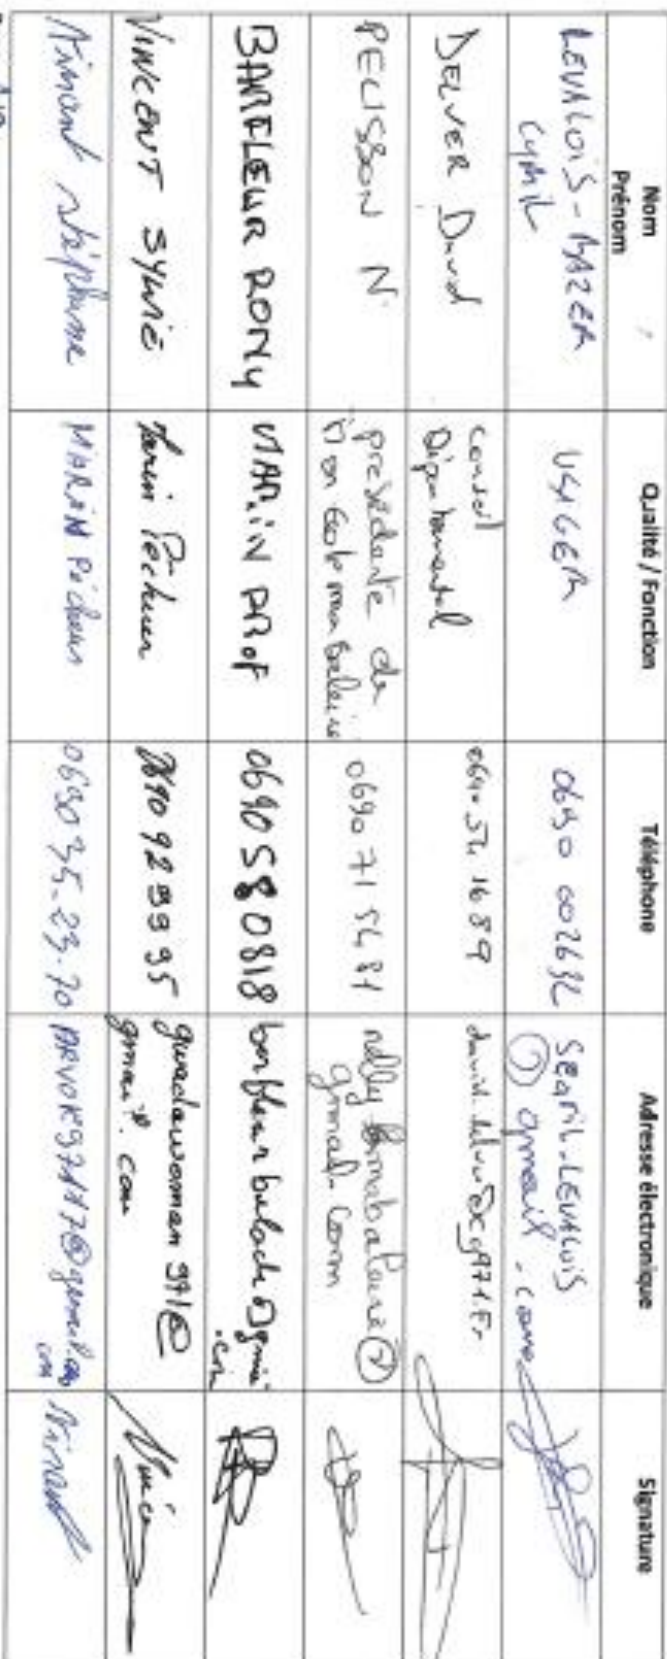 Nom
Prénom
Qualité / Fonction
Téléphone
Adresse électronique
Signature
LEVALOIS - BAZER
Cyril
USAGER
0690 602632
@ gmail.com
DELVER David
Conseil
Départemental
david.delver@cg971.fr
PELISSON N
présidente de
0690 71 54 81
nelly
gmail.com
BARFLEUR RONY
MARIN PROF
0690580818
VINCENT SYLVIE
Marin Pêcheur
0690 92 99 95
guadawoman 971@
gmail.com
Aimant Stéphane
MARIN Pêcheur
069035.23.70
ARVOK97117@gmail.com